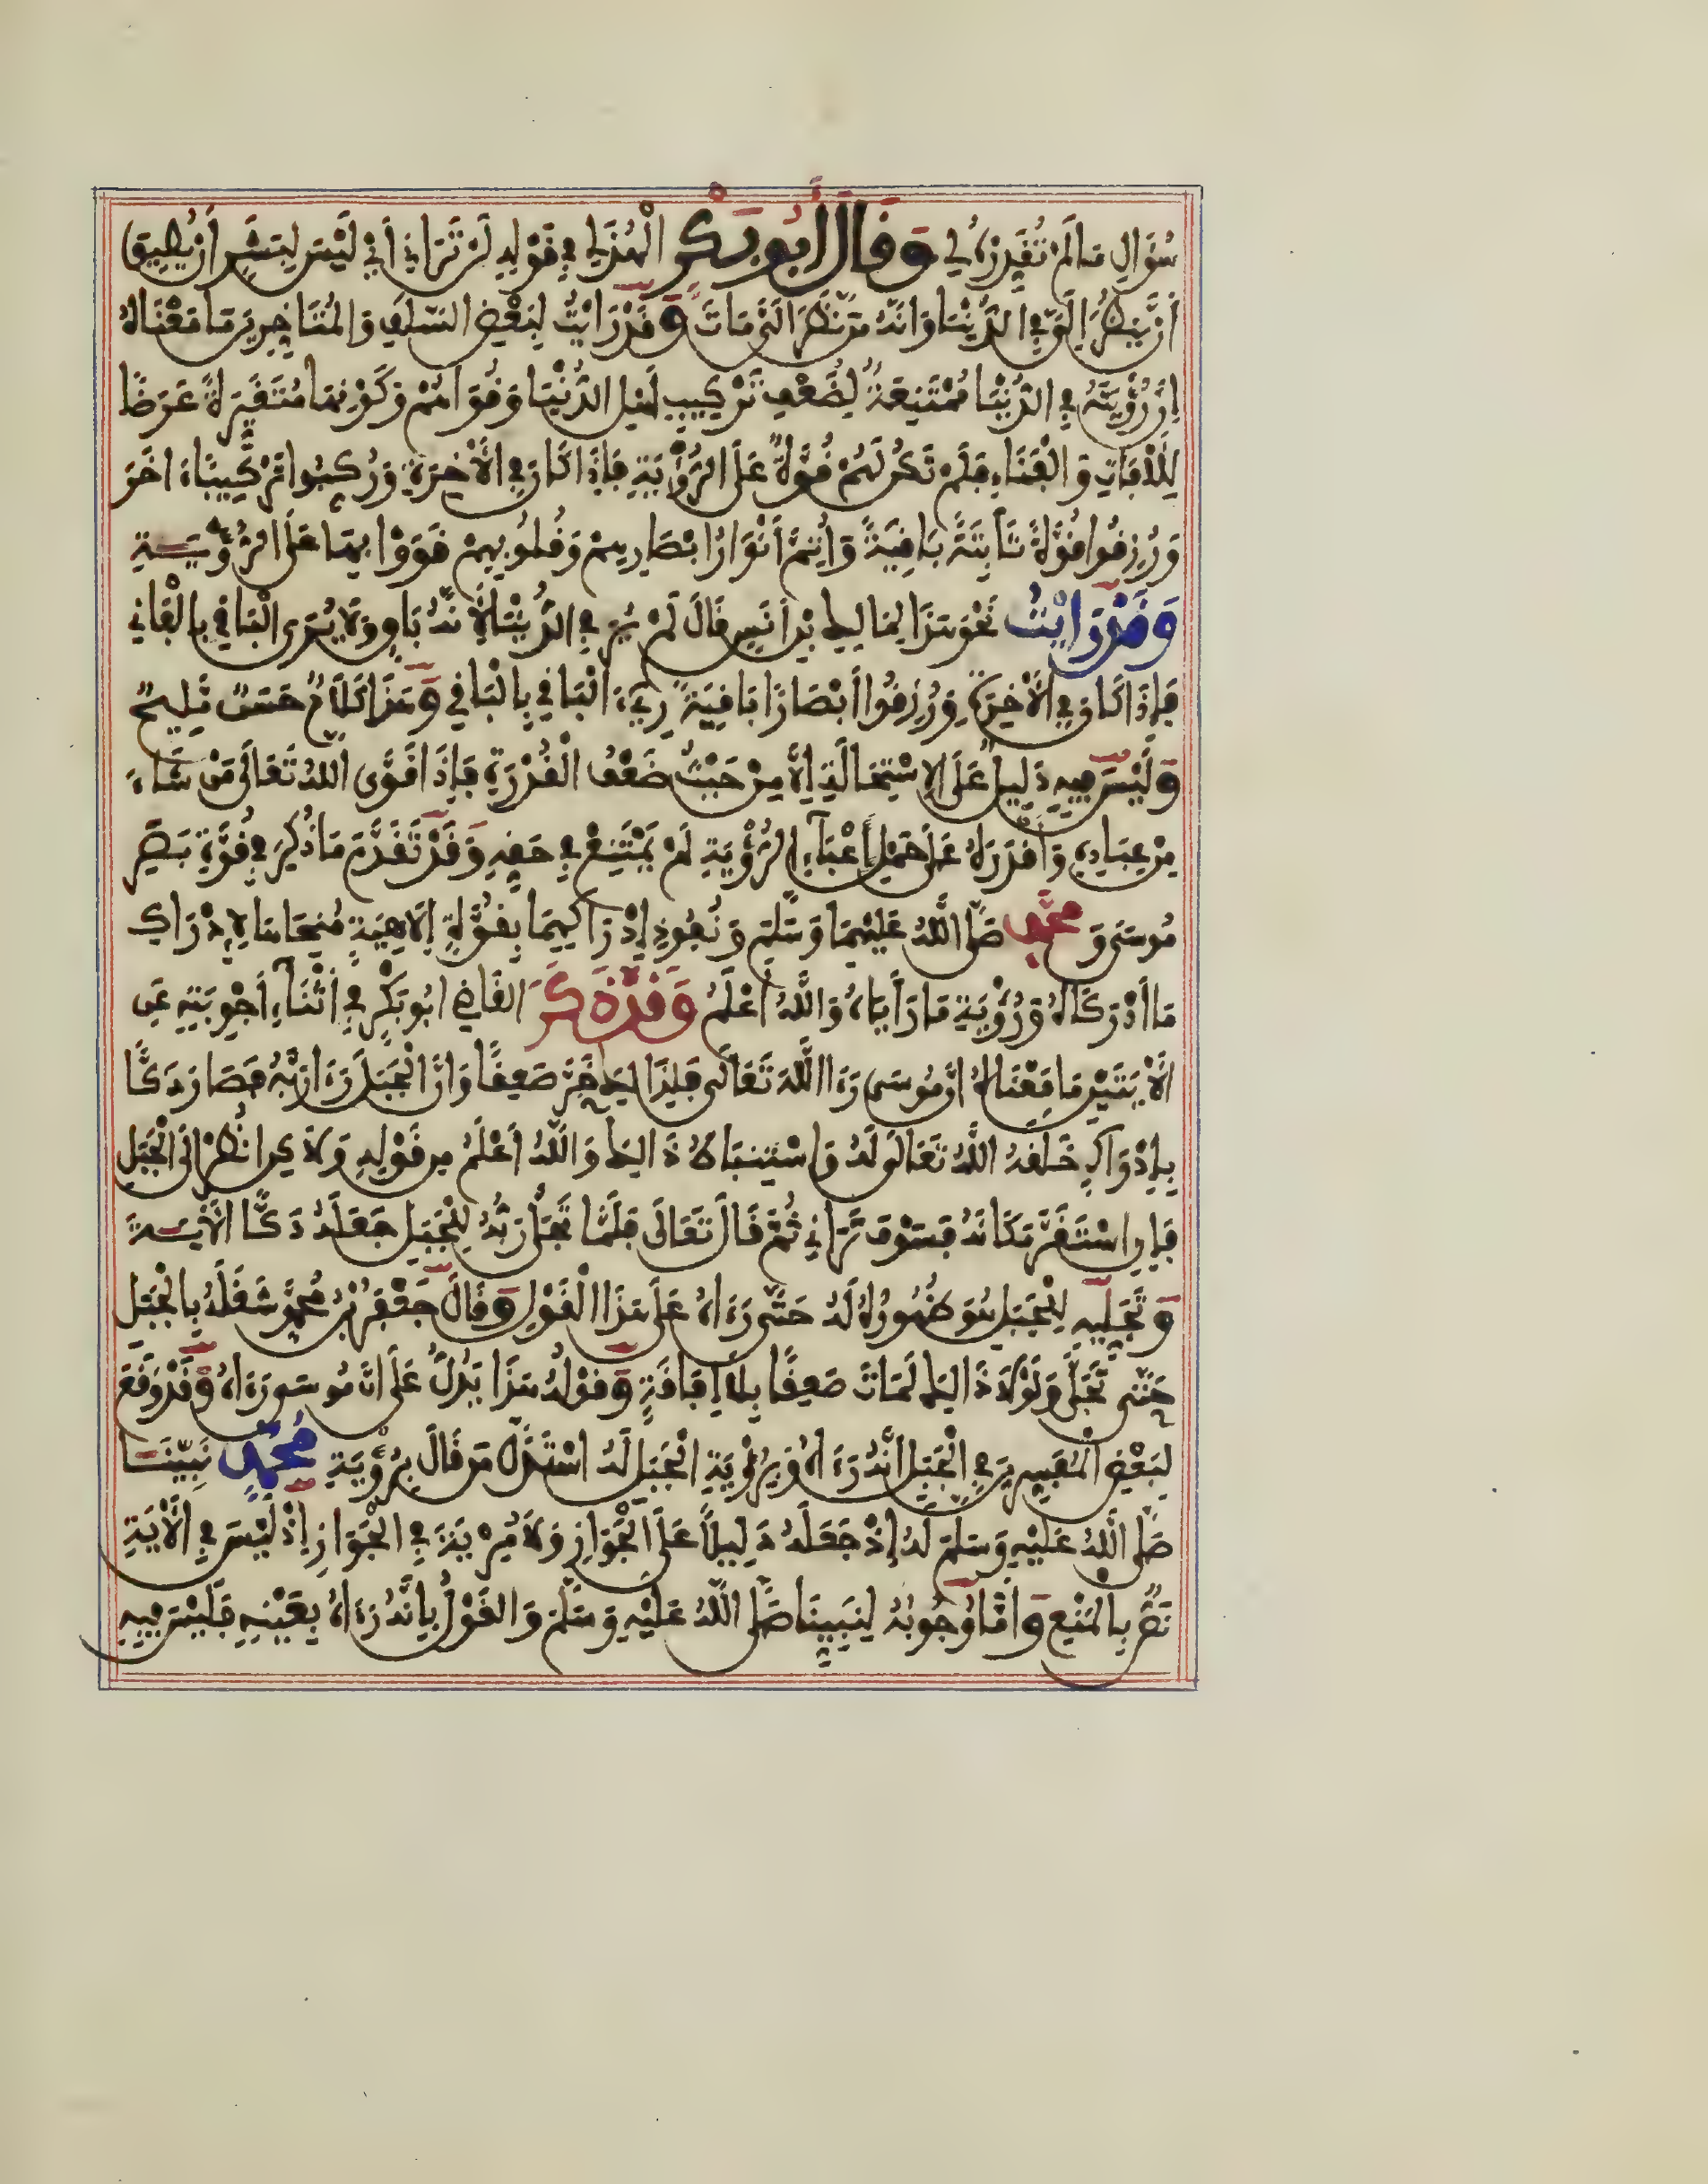 سُؤَالِ مَا لَمْ تُقَدِّرْهُ لِي وَقَالَ أَبُو بَكْرٍ الْهُذَلِي فِي قَوْلِهِ لَنْ تَرَانِي أَيْ لَيْسَ لِبَشَرٍ أَنْ يُطِيقَ
أَنْ يَنْظُرَ إِلَيَّ فِي الدُّنْيَا وَأَنَّهُ مَنْ نَظَرَ إِلَيَّ مَاتَ وَقَدْ رَأَيْتُ لِبَعْضِ السَّلَفِ وَالْمُتَأَخِّرِينَ مَا مَعْنَاهُ
إِنَّ رُؤْيَتَهُ فِي الدُّنْيَا مُمْتَنِعَةٌ لِضُعْفِ تَرْكِيبِ أَهْلِ الدُّنْيَا وَقُوَاهُمْ وَكَوْنِهَا مُتَغَيِّرَةً عَرَضًا
لِلْآفَاتِ وَالْفَنَاءِ فَلَمْ تَكُنْ لَهُمْ قُوَّةٌ عَلَى الرُّؤْيَةِ فَإِذَا كَانَ فِي الْآخِرَةِ وَرُكِّبُوا تَرْكِيبًا ءَاخَرَ
وَرُزِقُوا قُوَّةً ثَابِتَةً بَاقِيَةً وَأُتِمَّ أَنْوَارُ أَبْصَارِهِمْ وَقُلُوبِهِمْ قَوَوْا بِهَا عَلَى الرُّؤْيَةِ
وَقَدْ رَأَيْتُ نَحْوَ هَذَا لِمَالِكِ بْنِ أَنَسٍ قَالَ لَمْ يُرَ فِي الدُّنْيَا لِأَنَّهُ بَاقٍ وَلَا يُرَى الْبَاقِي بِالْفَانِي
فَإِذَا كَانَ فِي الْآخِرَةِ وَرُزِقُوا أَبْصَارًا بَاقِيَةً رِيءَ الْبَاقِي بِالْبَاقِي وَهَذَا كَلَامٌ حَسَنٌ مَلِيحٌ
وَلَيْسَ فِيهِ دَلِيلٌ عَلَى الِاسْتِحَالَةِ إِلَّا مِنْ حَيْثُ ضَعْفُ الْقُدْرَةِ فَإِذَا قَوَّى اللَّهُ تَعَالَى مَنْ شَاءَ
مِنْ عِبَادِهِ وَأَقْدَرَهُ عَلَى حَمْلِ أَعْبَاءِ الرُّؤْيَةِ لَمْ يَمْتَنِعْ فِي حَقِّهِ وَقَدْ تَقَدَّمَ مَا ذُكِرَ فِي قُوَّةِ بَصَرِ
مُوسَى وَمُحَمَّدٍ صَلَّى اللَّهُ عَلَيْهِمَا وَسَلَّمَ وَنُفُوذِ إِدْرَاكِهِمَا بِقُوَّةٍ إِلَاهِيَةٍ مُنِحَاهَا لِإِدْرَاكِ
مَا أَدْرَكَاهُ وَرُؤْيَةِ مَا رَأَيَاهُ وَاللَّهُ أَعْلَمُ وَقَدْ ذَكَرَ الْقَاضِي أَبُو بَكْرٍ فِي أَثْنَاءِ أَجْوِبَتِهِ عَنِ
الْآيَتَيْنِ مَا مَعْنَاهُ أَنَّ مُوسَى رَءَا اللَّهَ تَعَالَى فَلِذَالِكَ خَرَّ صَعِقًا وَأَنَّ الْجَبَلَ رَءَا رَبَّهُ فَصَارَ دَكًّا
بِإِدْرَاكٍ خَلَقَهُ اللَّهُ تَعَالَى لَهُ وَاسْتَنْبَاهُ ذَالِكَ وَاللَّهُ أَعْلَمُ مِنْ قَوْلِهِ وَلَكِنِ انْظُرْ إِلَى الْجَبَلِ
فَإِنِ اسْتَقَرَّ مَكَانَهُ فَسَوْفَ تَرَانِي ثُمَّ قَالَ تَعَالَى فَلَمَّا تَجَلَّى رَبُّهُ لِلْجَبَلِ جَعَلَهُ دَكًّا الْآيَةَ
وَتَجَلِّيهِ لِلْجَبَلِ هُوَ ظُهُورُهُ لَهُ حَتَّى رَءَاهُ عَلَى هَذَا الْقَوْلِ وَقَالَ جَعْفَرُ بْنُ مُحَمَّدٍ شَغَلَهُ بِالْجَبَلِ
حَتَّى تَجَلَّى وَلَوْلَا ذَالِكَ لَمَاتَ صَعِقًا بِلَا إِفَاقَةٍ وَقَوْلُهُ هَذَا يَدُلُّ عَلَى أَنَّ مُوسَى رَءَاهُ وَقَدْ وَقَعَ
لِبَعْضِ الْمُفَسِّرِينَ فِي الْجَبَلِ أَنَّهُ رَءَاهُ وَبِرُؤْيَةِ الْجَبَلِ لَهُ اسْتَدَلَّ مَنْ قَالَ بِرُؤْيَةِ مُحَمَّدٍ نَبِيِّنَا
صَلَّى اللَّهُ عَلَيْهِ وَسَلَّمَ لَهُ إِذْ جَعَلَهُ دَلِيلًا عَلَى الْجَوَازِ وَلَا مِرْيَةَ فِي الْجَوَازِ إِذْ لَيْسَ فِي الْآيَةِ
نَصٌّ بِالْمَنْعِ وَأَمَّا وُجُوبُهُ لِنَبِيِّنَا صَلَّى اللَّهُ عَلَيْهِ وَسَلَّمَ وَالْقَوْلُ بِأَنَّهُ رَءَاهُ بِعَيْنِهِ فَلَيْسَ فِيهِ